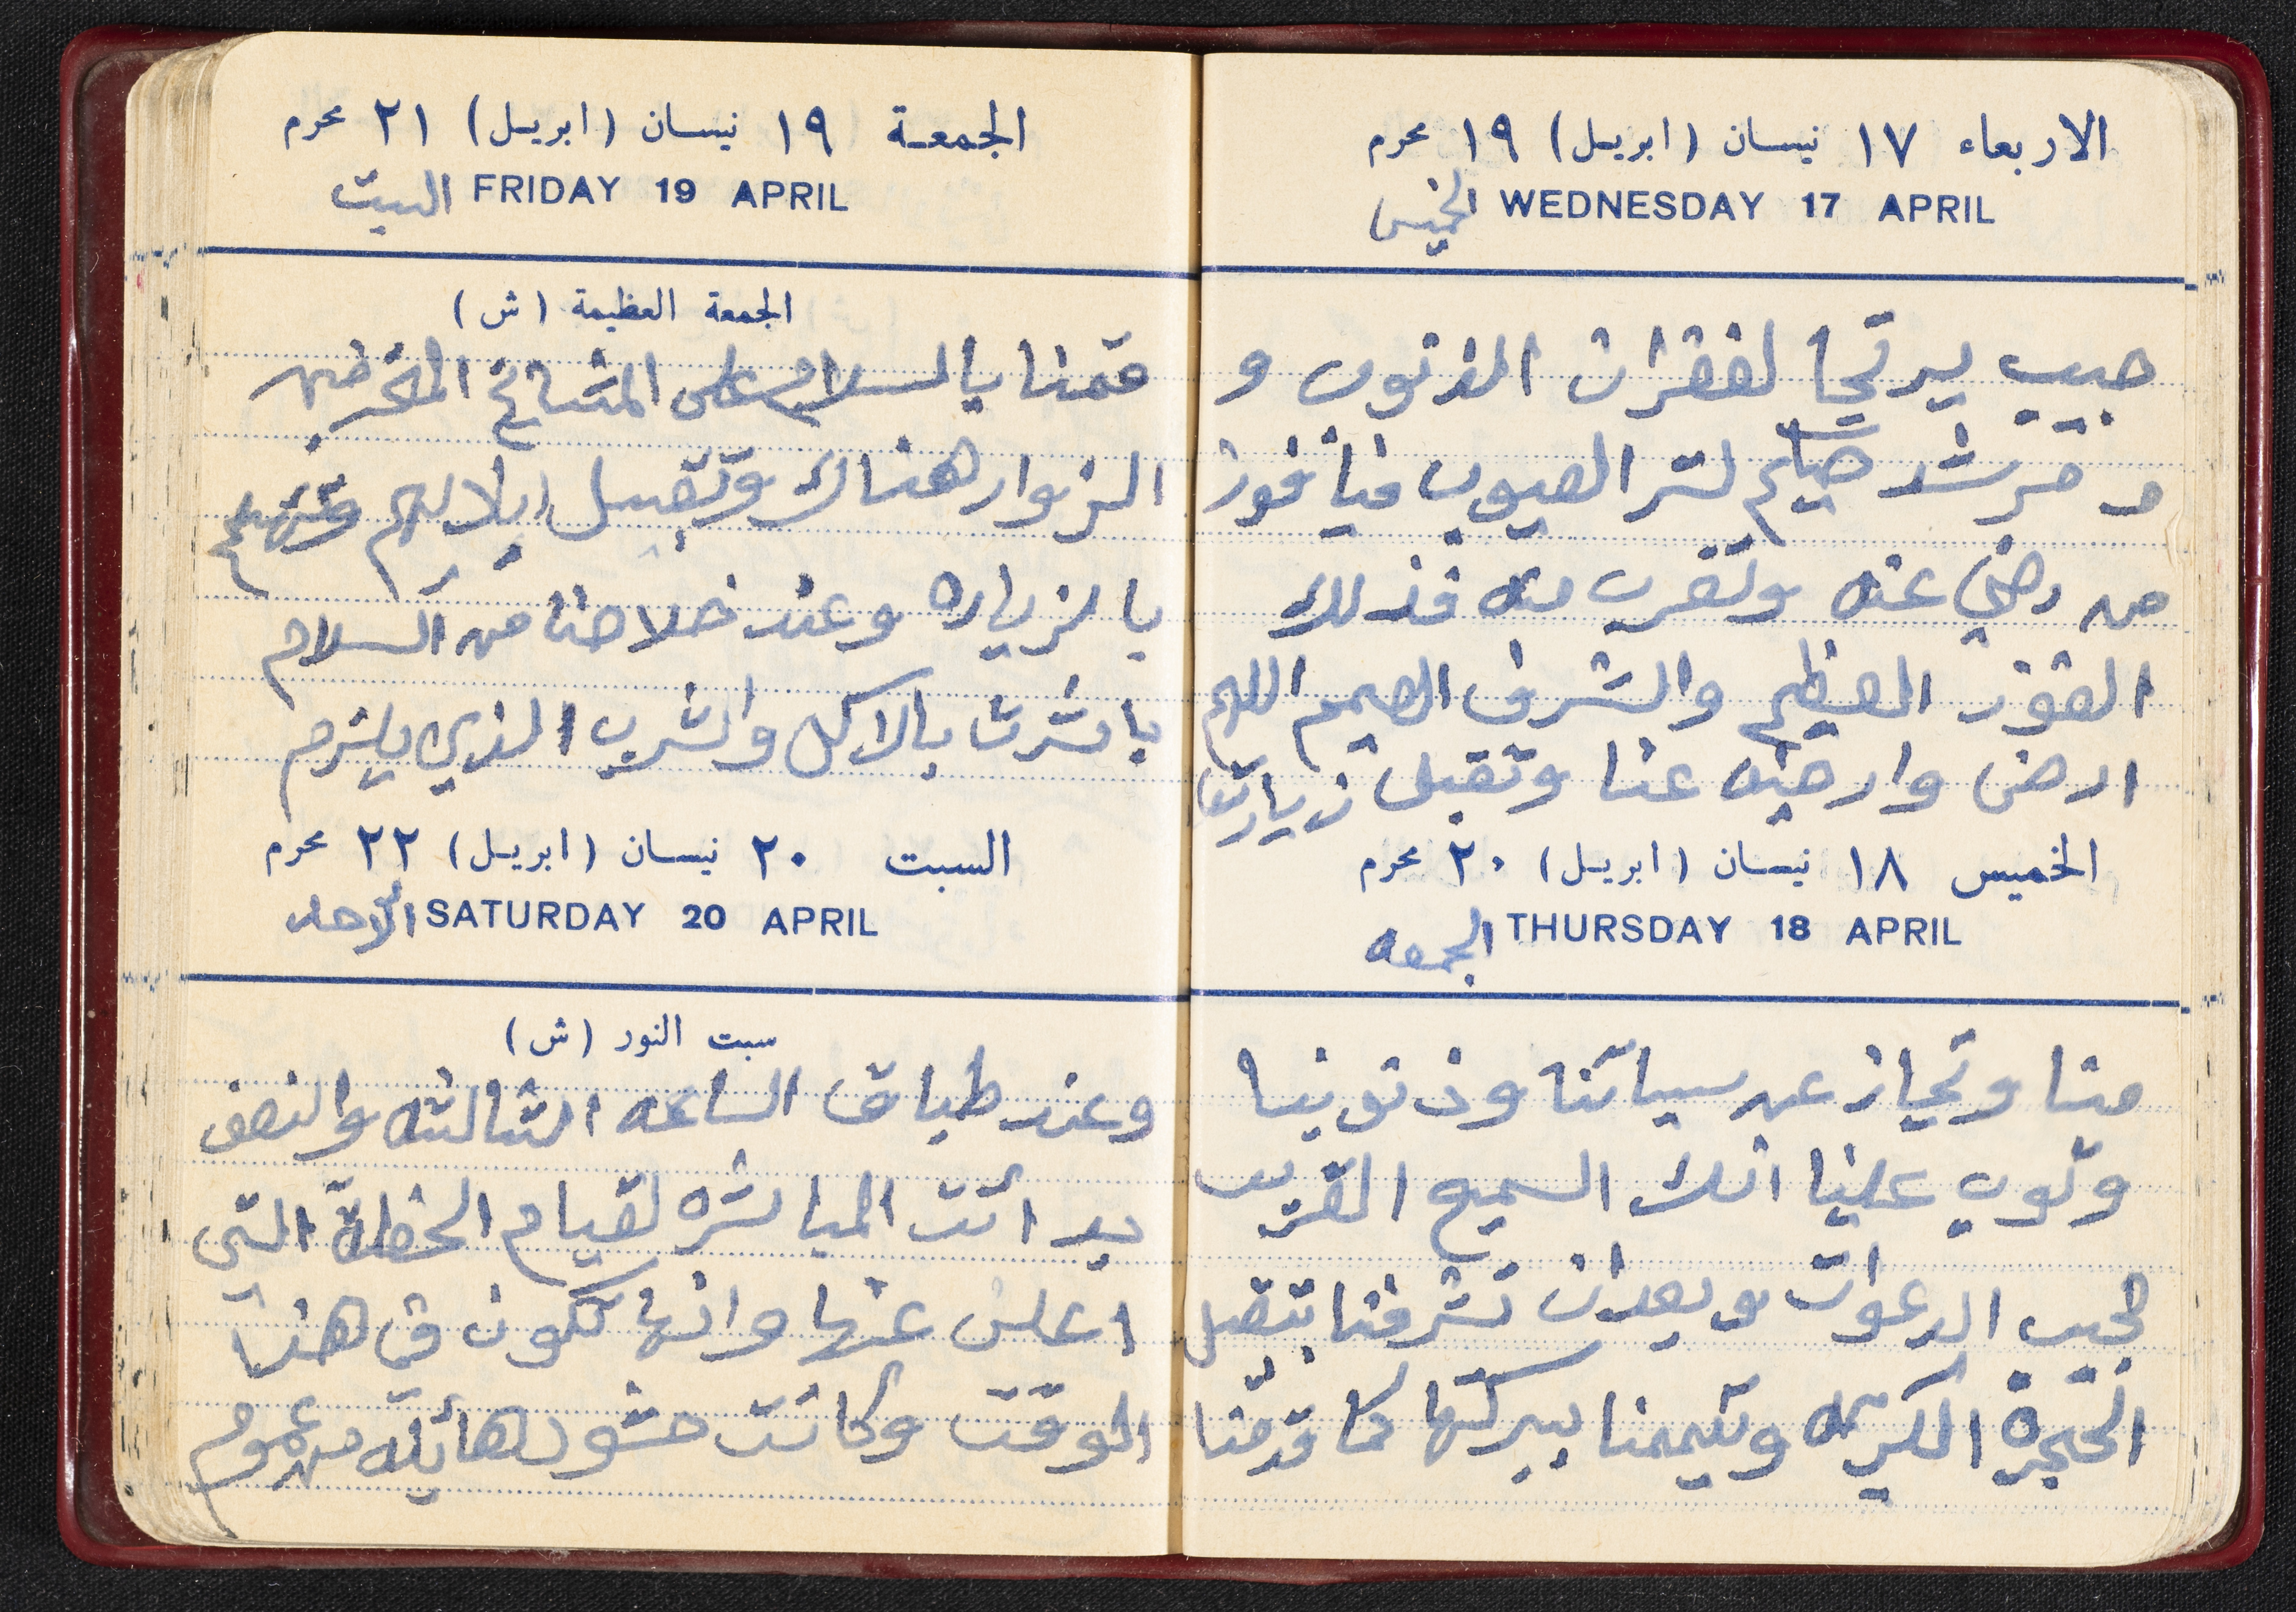 الاربعاء ١٧ نيسان (ابريل) ١٩ محرم
WEDNESDAY 17 APRIL الخميس
حبيب يرتجا لغفران الذنوب و
مرشد حليم لستر العيوب فيا فوز
من رضي عنه وتقرب منه فذلك
الفوز العظيم والشرف العميم اللهم
ارض وارضيه عنا وتقبل زيارتنا
الخميس ١٨ نيسان (ابريل) ٢٠ محرم
THURSDAY 18 APRIL الجمعه
منا وتجاز عن سياتنا وذنوبنا
وتوب علينا انك السميع القريب
مجيب الدعوات وبعد ان تشرفنا بتقبل
الحجرة الكريمه وتيممنا ببركتها كما قدمنا
الجمعة ١٩ نيسان (ابريل) ٢١ محرم
FRIDAY 19 APRIL السبت
الجمعة العظيمة (ش)
قمنا بالسلام على المشائخ
الزوار هناك وتقبيل
بالزياره وعند خلاصنا من السلام
باشرت بالاكل والشرب الذي يلزم
السبت ٢٠ نيسان (ابريل) ٢٢ محرم
SATURDAY 20 APRIL الاحد
سبت النور (ش)
وعند طباق الساعه الثالثه والنصف
بدائت المباشره لقيام الحفلة التي
اعلن عنها وانها تكون في هذا
الوقت وكانت حشود هائله من عموم